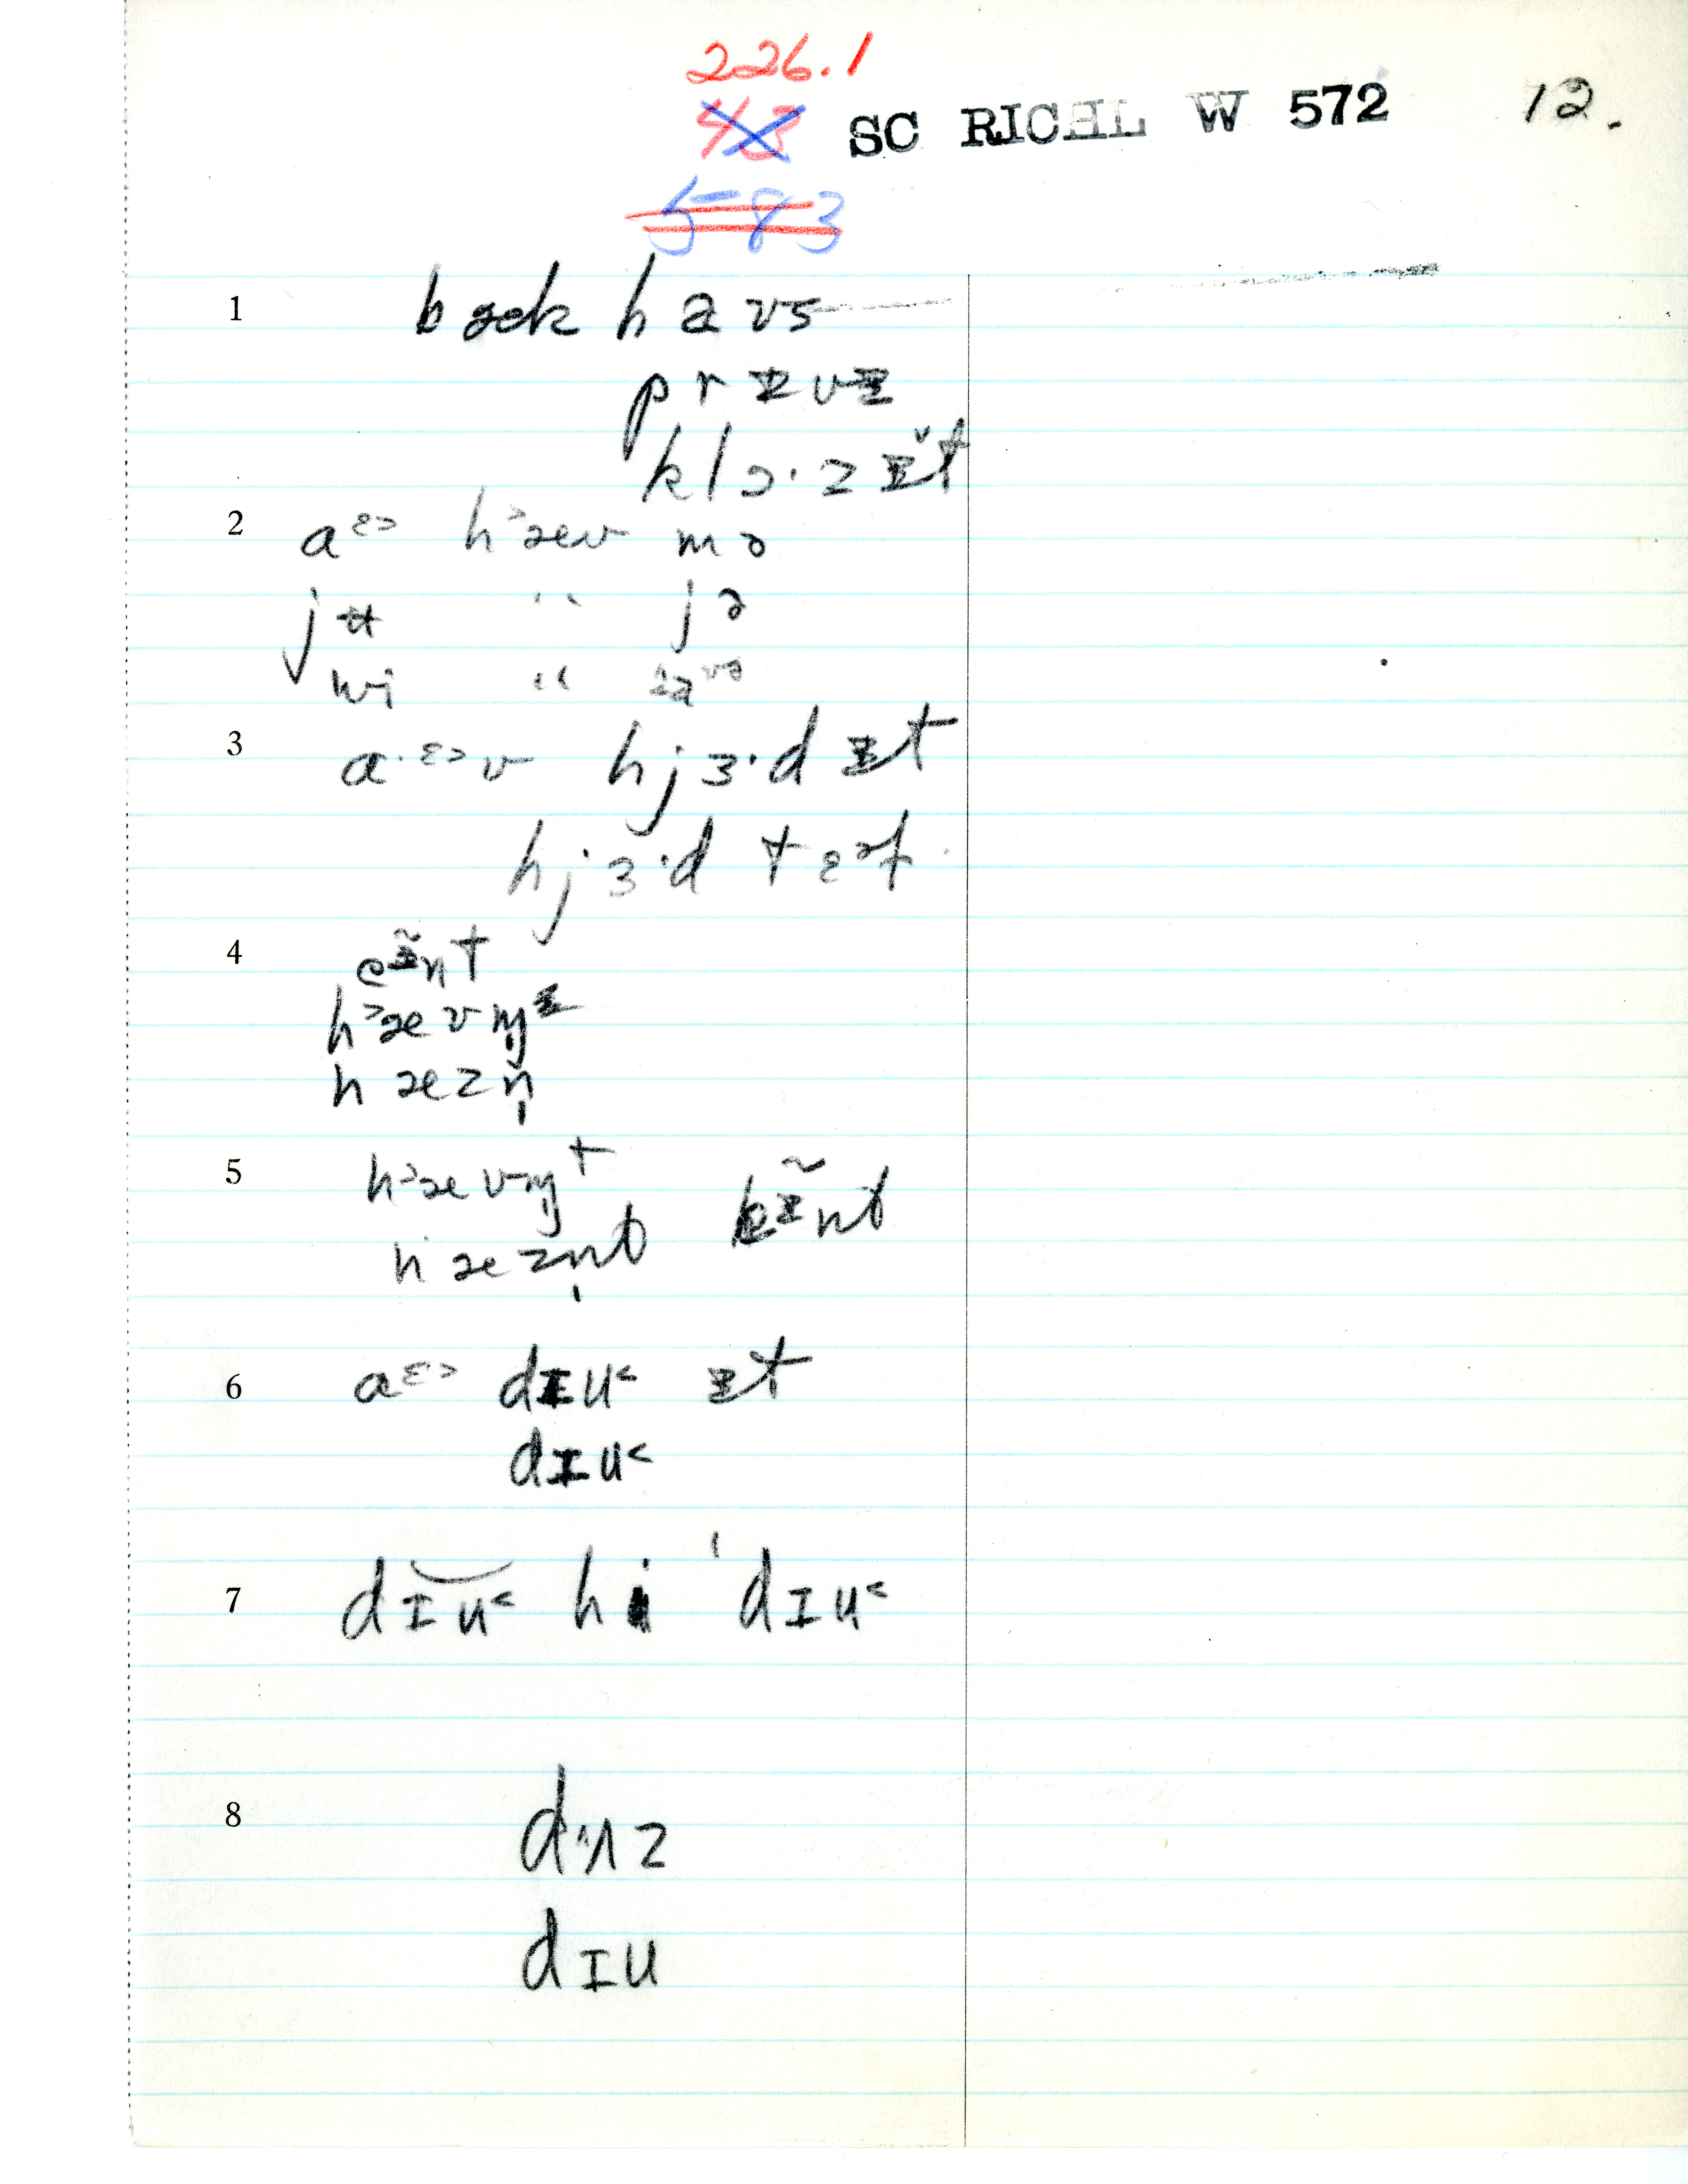 226.1
43 SC RICHL W 572 12.
583
1 bæk haʊs
prɪvɪ
klɔ·zɪ̌t
2 aᵋ˃ h˃æv mə
jʉ " jə
wi " aʊə
3 a·ᵋ˃v hjɜ·d ɪt
hjɜ·d tɛət
4 eɪ̃nt
h˃ævm̩ɪ
hæzn̩
5 h˃ævm̩t
hæzn̩t eɪ̃nt
6 aᵋ˃ dɪu˂ ɪt
dɪu˂
7 dɪu˂ hi ˈdɪu˂
8 dʌz
dɪu